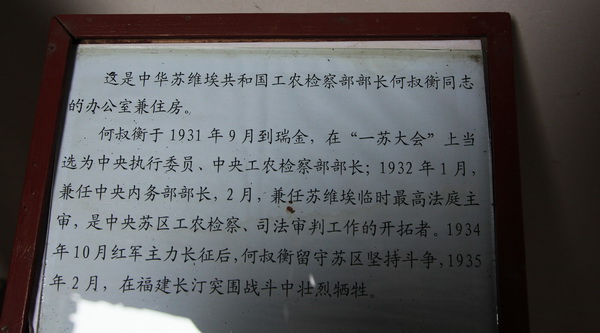 这是中华苏维埃共和国工农检察部部长何叔衡同志
的办公室兼住房。
何叔衡于1931年9月到瑞金，在“一苏大会”上当
选为中央执行委员、中央工农检察部部长；1932年1月，
兼任中央内务部部长，2月，兼任苏维埃临时最高法庭主
审，是中央苏区工农检察、司法审判工作的开拓者。1934
年10月红军主力长征后，何叔衡留守苏区坚持斗争，1935
年2月，在福建长汀突围战斗中壮烈牺牲。